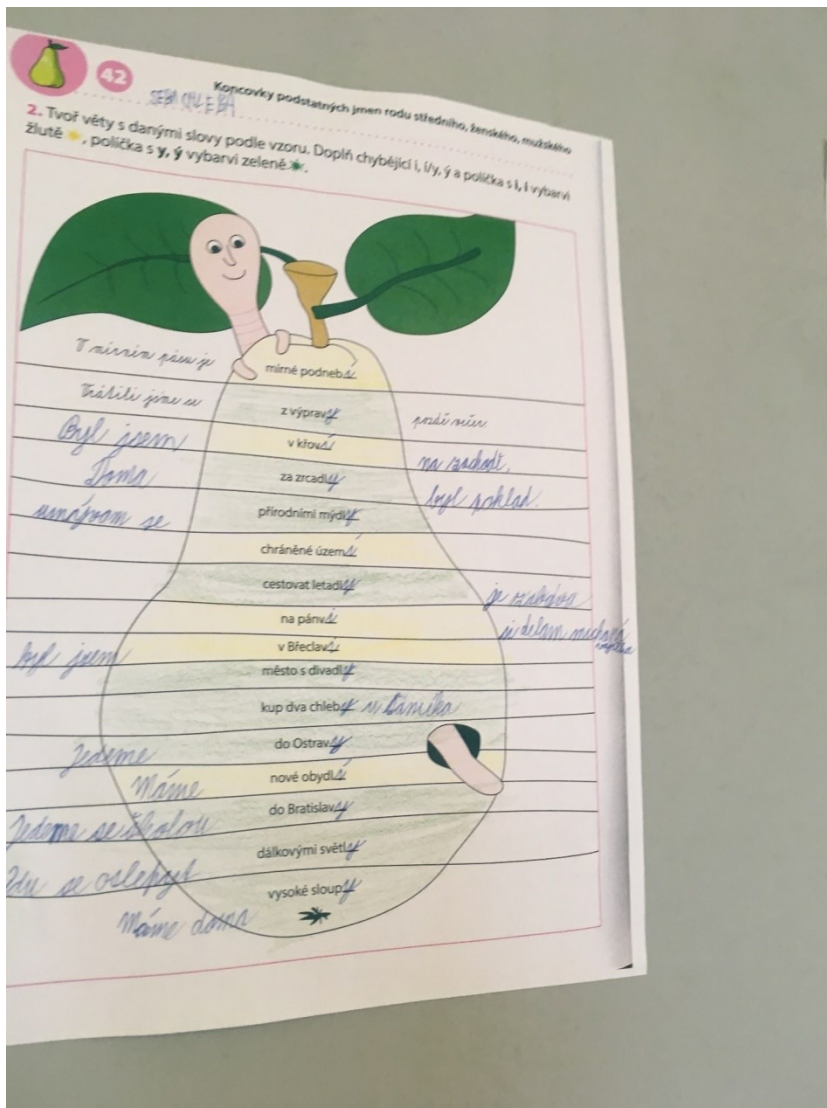 42
Koncovky podstatných jmen rodu středního, ženského, mužského
SEBA CHLEBA
2. Tvoř věty s danými slovy podle vzoru. Doplň chybějící i, í/y, ý a políčka s i, í vybarvi
žlutě, políčka s y, ý vybarvi zeleně.
V mírném pásu je mírné podnebí
Vrátili jsme se z výpravy pozdě večer.
Byl jsem v křoví na zachodě.
Doma za zrcadly byl poklad.
umávam se přírodními mýdly
chráněné území
cestovat letadly je
na pánvi si delam
byl jsem v Břeclavi
město s divadly
kup dva chleby u
Jedeme do Ostravy
Máme nové obydlí
Jedeme se školou do Bratislavy
Jdu se dálkovými světly
Máme doma vysoké sloupy